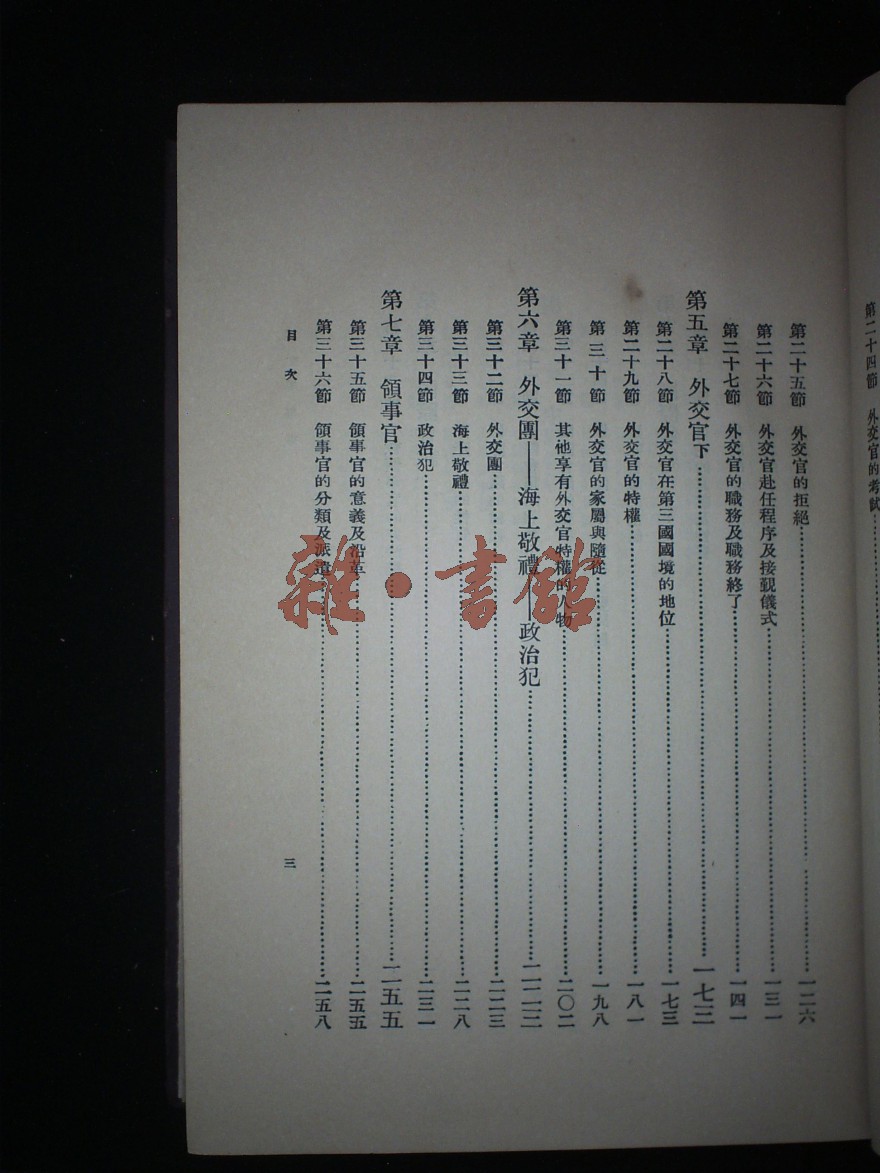 第二十四節　外交官的考試
第二十五節　外交官的拒絕……一二六
第二十六節　外交官赴任程序及接覲儀式……一三一
第二十七節　外交官的職務及職務終了……一四一
第五章　外交官下……一七三
第二十八節　外交官在第三國國境的地位……一七三
第二十九節　外交官的特權……一八一
第三十節　外交官的家屬與隨從……一九八
第三十一節　其他享有外交官特權的人物……二〇二
第六章　外交團——海上敬禮——政治犯……二二三
第三十二節　外交團……二二三
第三十三節　海上敬禮……二二八
第三十四節　政治犯……二三一
第七章　領事官……二五五
第三十五節　領事官的意義及沿革……二五五
第三十六節　領事官的分類及派遣……二五八
目次
三
雜·書館